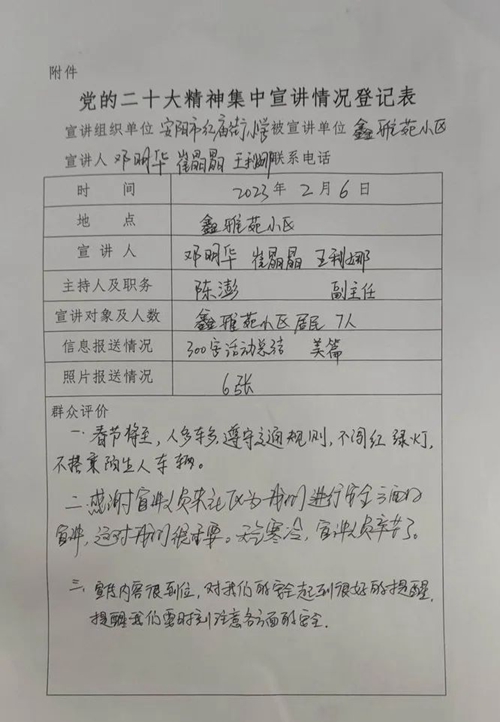 附件
党的二十大精神集中宣讲情况登记表
宣讲组织单位 安阳市红庙街小学 被宣讲单位 鑫雅苑小区
宣讲人 邓明华 崔晶晶 王利娜 联系电话
时间 2023年2月6日
地点 鑫雅苑小区
宣讲人 邓明华 崔晶晶 王利娜
主持人及职务 陈澎 副主任
宣讲对象及人数 鑫雅苑小区居民 7人
信息报送情况 300字活动总结 美篇
照片报送情况 6张
群众评价
一. 春节将至,人多车多,遵守交通规则,不闯红绿灯,
不搭乘陌生人车辆。
二.感谢宣讲人员来社区为我们进行安全方面的
宣讲,这对我们很重要。天气寒冷,宣讲人员辛苦了。
三. 宣传内容很到位,对我们的安全起到很好的提醒,
提醒我们要时刻注意各方面的安全.